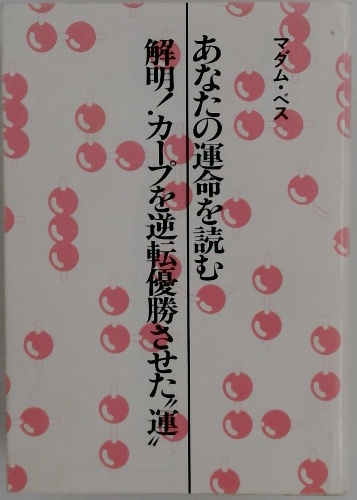 マダム・ベス
あなたの運命を読む
解明！カープを逆転優勝させた〝運〟